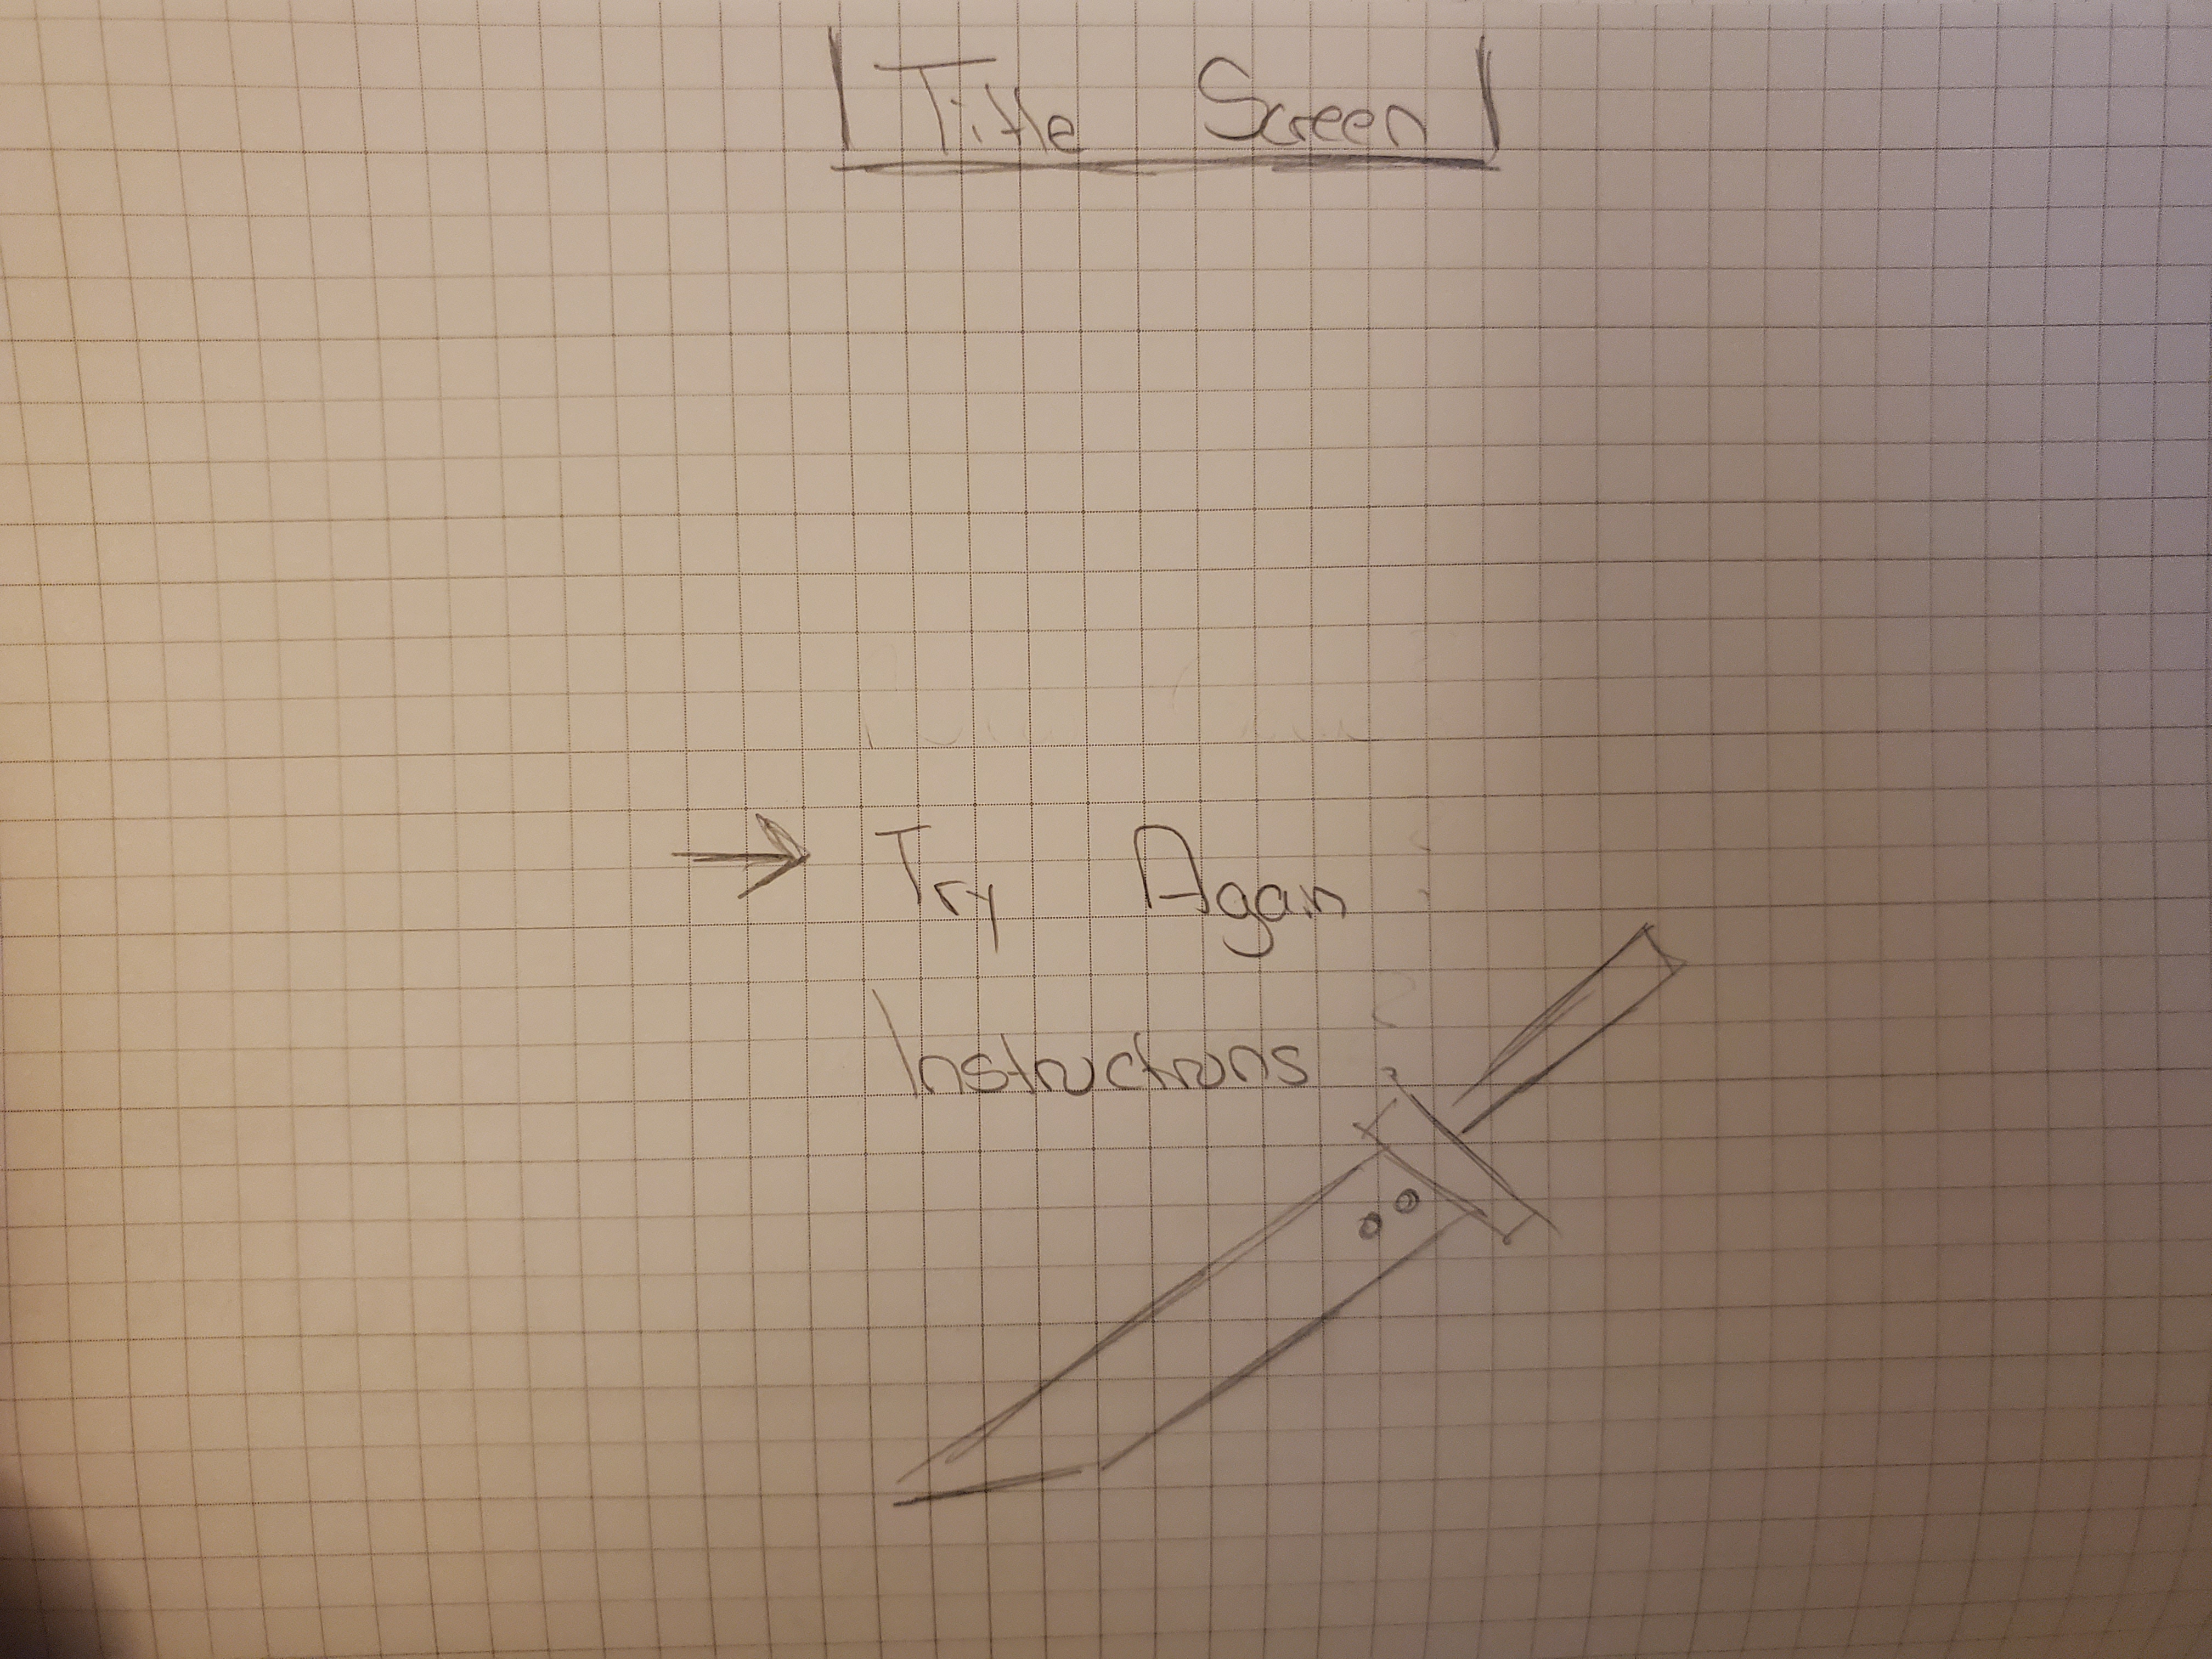 Title Screen
Try Again
Instructions